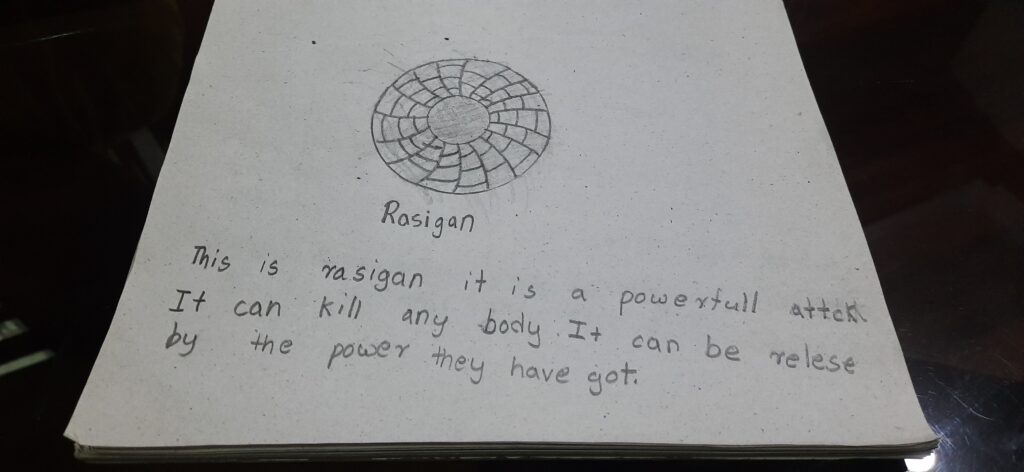 Rasigan
This is rasigan it is a powerfull attck.
It can kill any body. It can be relese
by the power they have got.